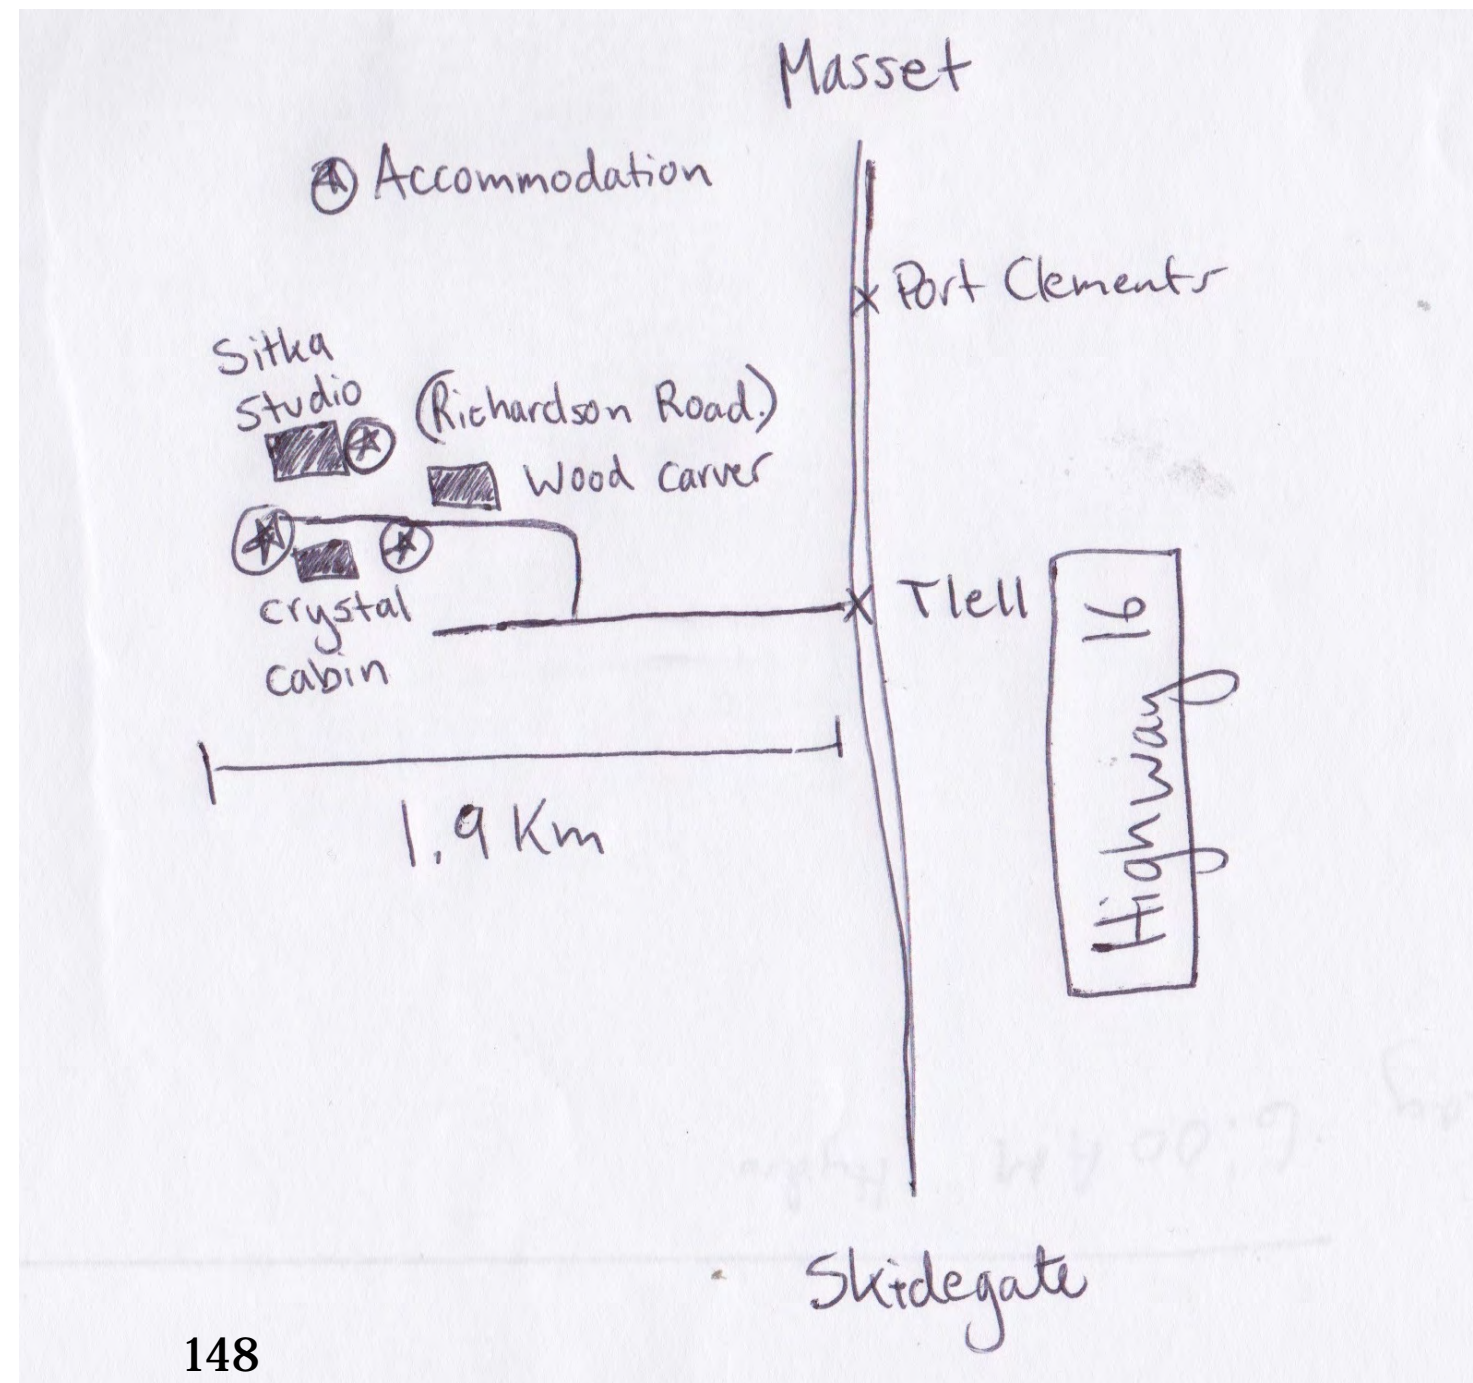 Masset
Accommodation
Port Clements
Sitka
Studio
(Richardson Road.)
Wood Carver
crystal
cabin
Tlell
Highway 16
1.9 Km
6:00 AM
Skidegate
148